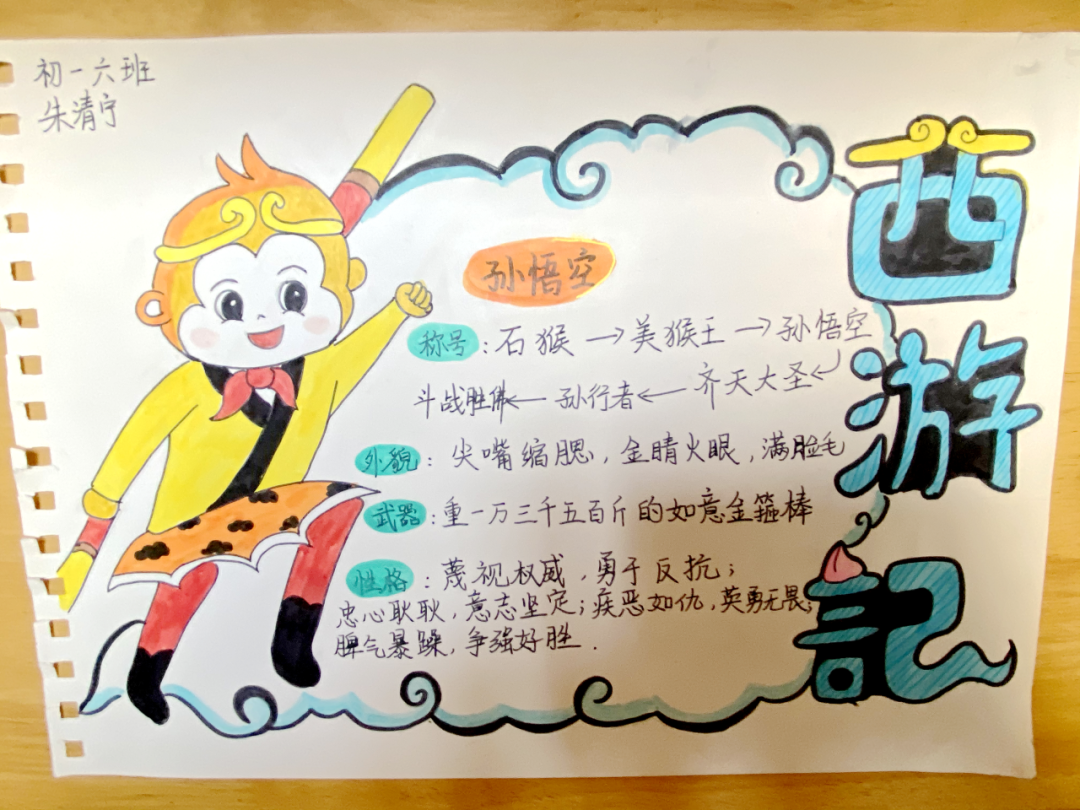 初一六班
朱清宁
西游記
孙悟空
称号：石猴→美猴王→孙悟空
斗战胜佛←孙行者←齐天大圣↙
外貌：尖嘴缩腮，金睛火眼，满脸毛
武器：重一万三千五百斤的如意金箍棒
性格：蔑视权威，勇于反抗；
忠心耿耿，意志坚定；疾恶如仇，英勇无畏；
脾气暴躁，争强好胜.